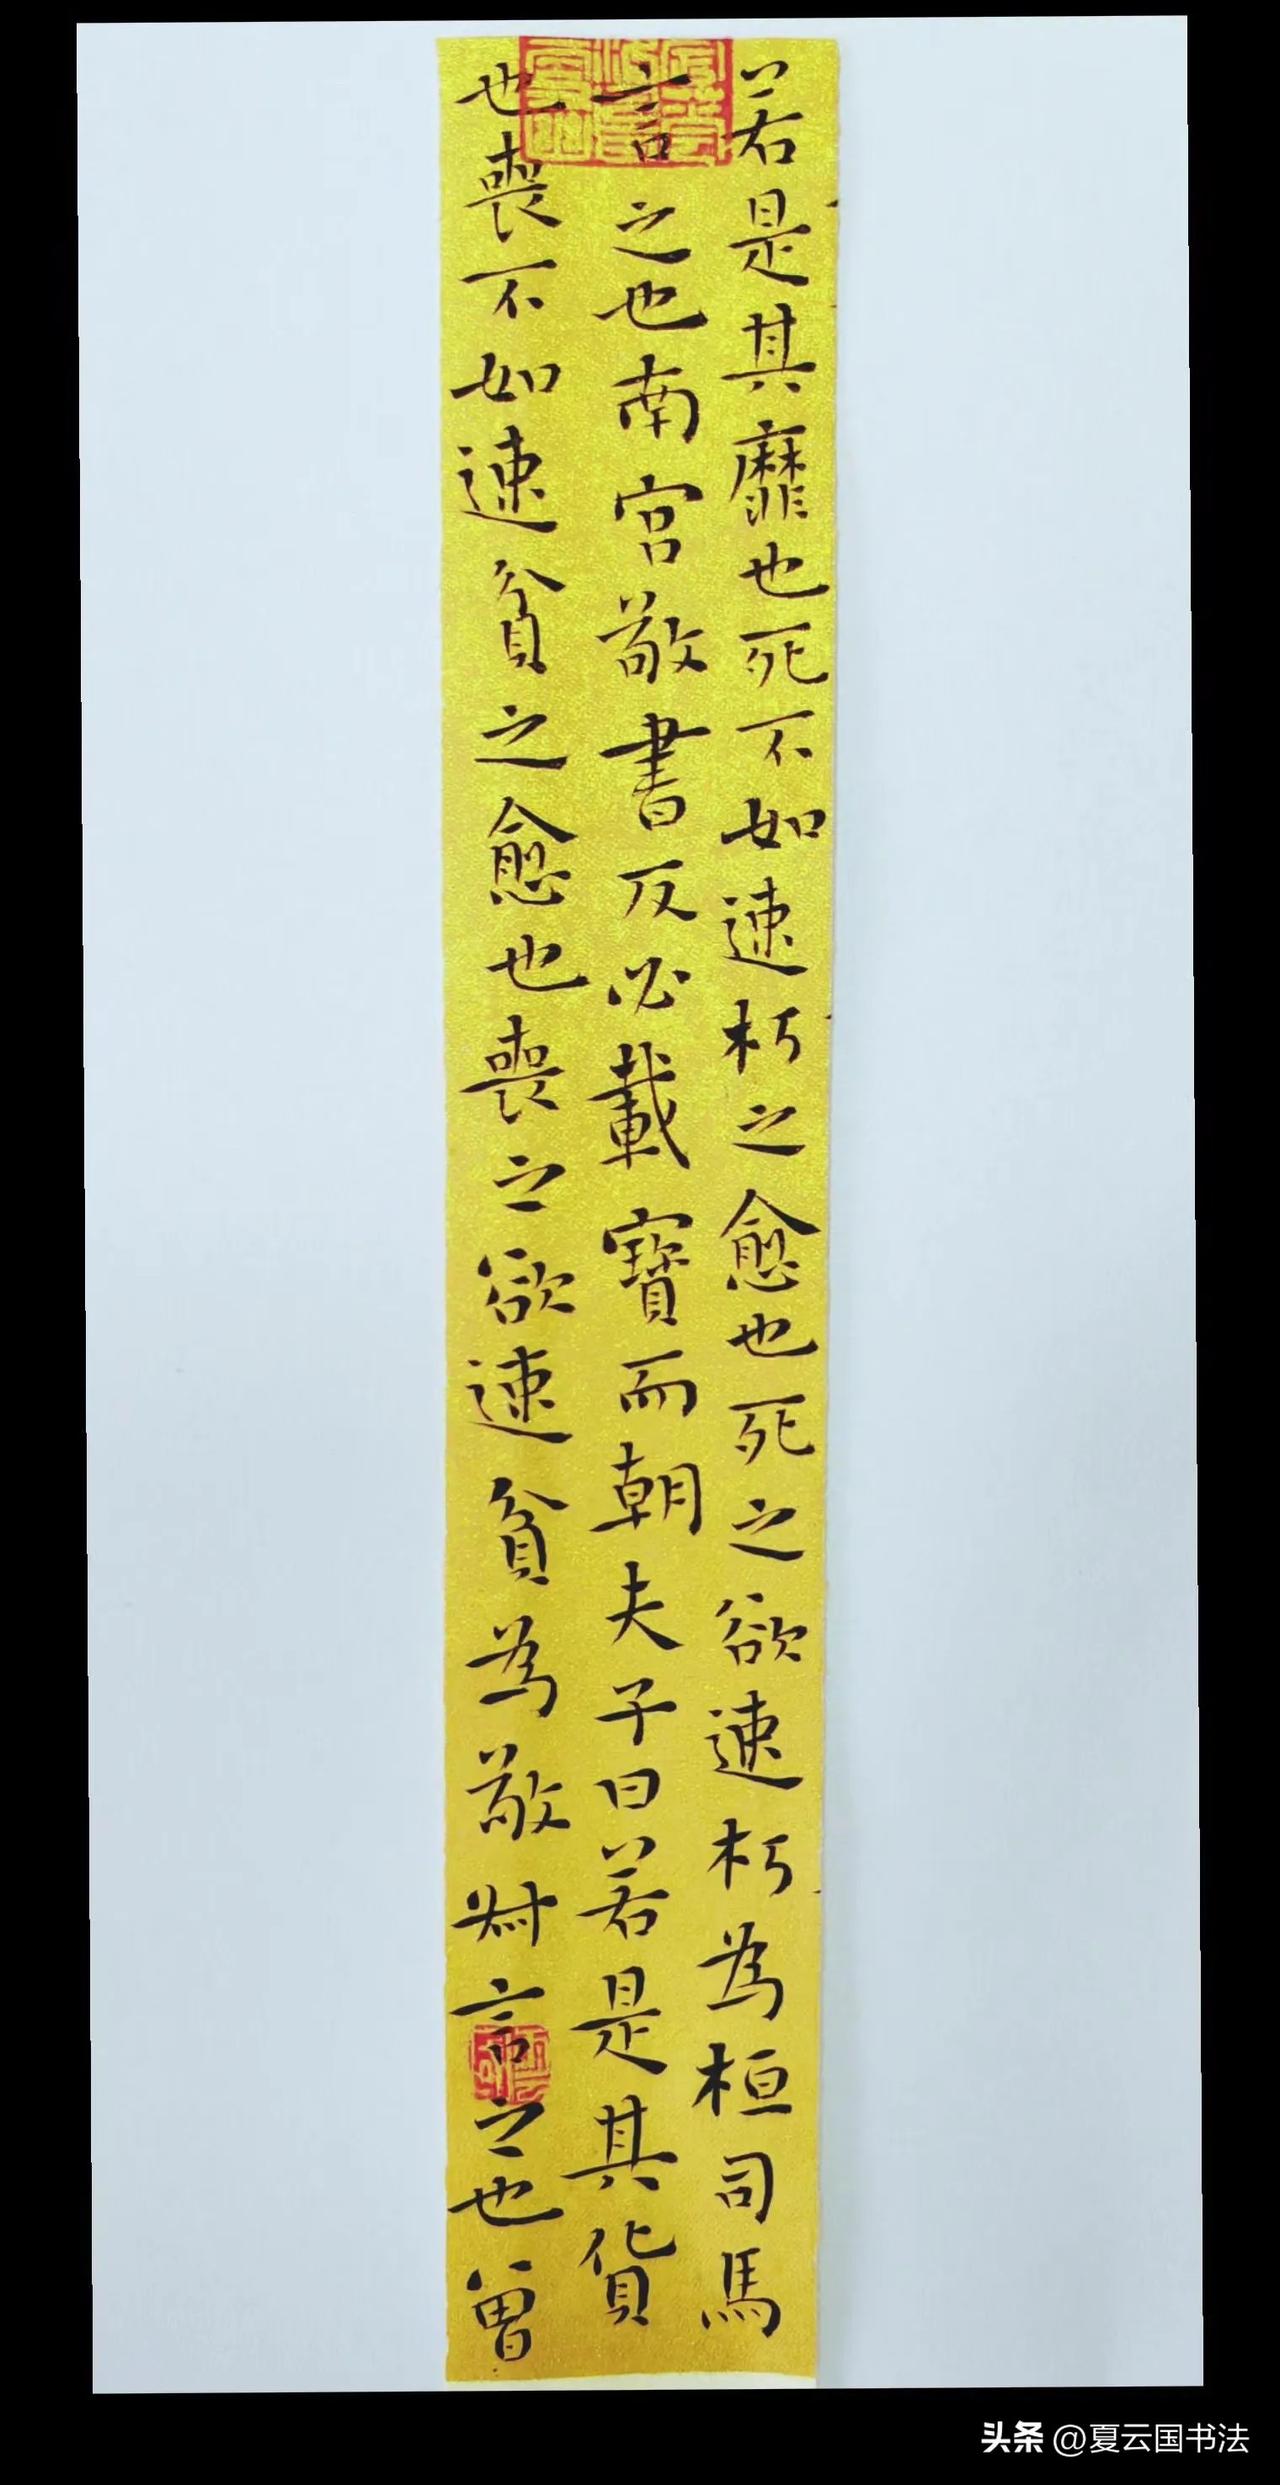 若是其靡也死不如速朽之愈也死之欲速朽為桓司馬
言之也南宮敬書反必載寶而朝夫子曰若是其貨
也喪不如速貧之愈也喪之欲速貧為敬叔言之也曾
头条 @夏云国书法